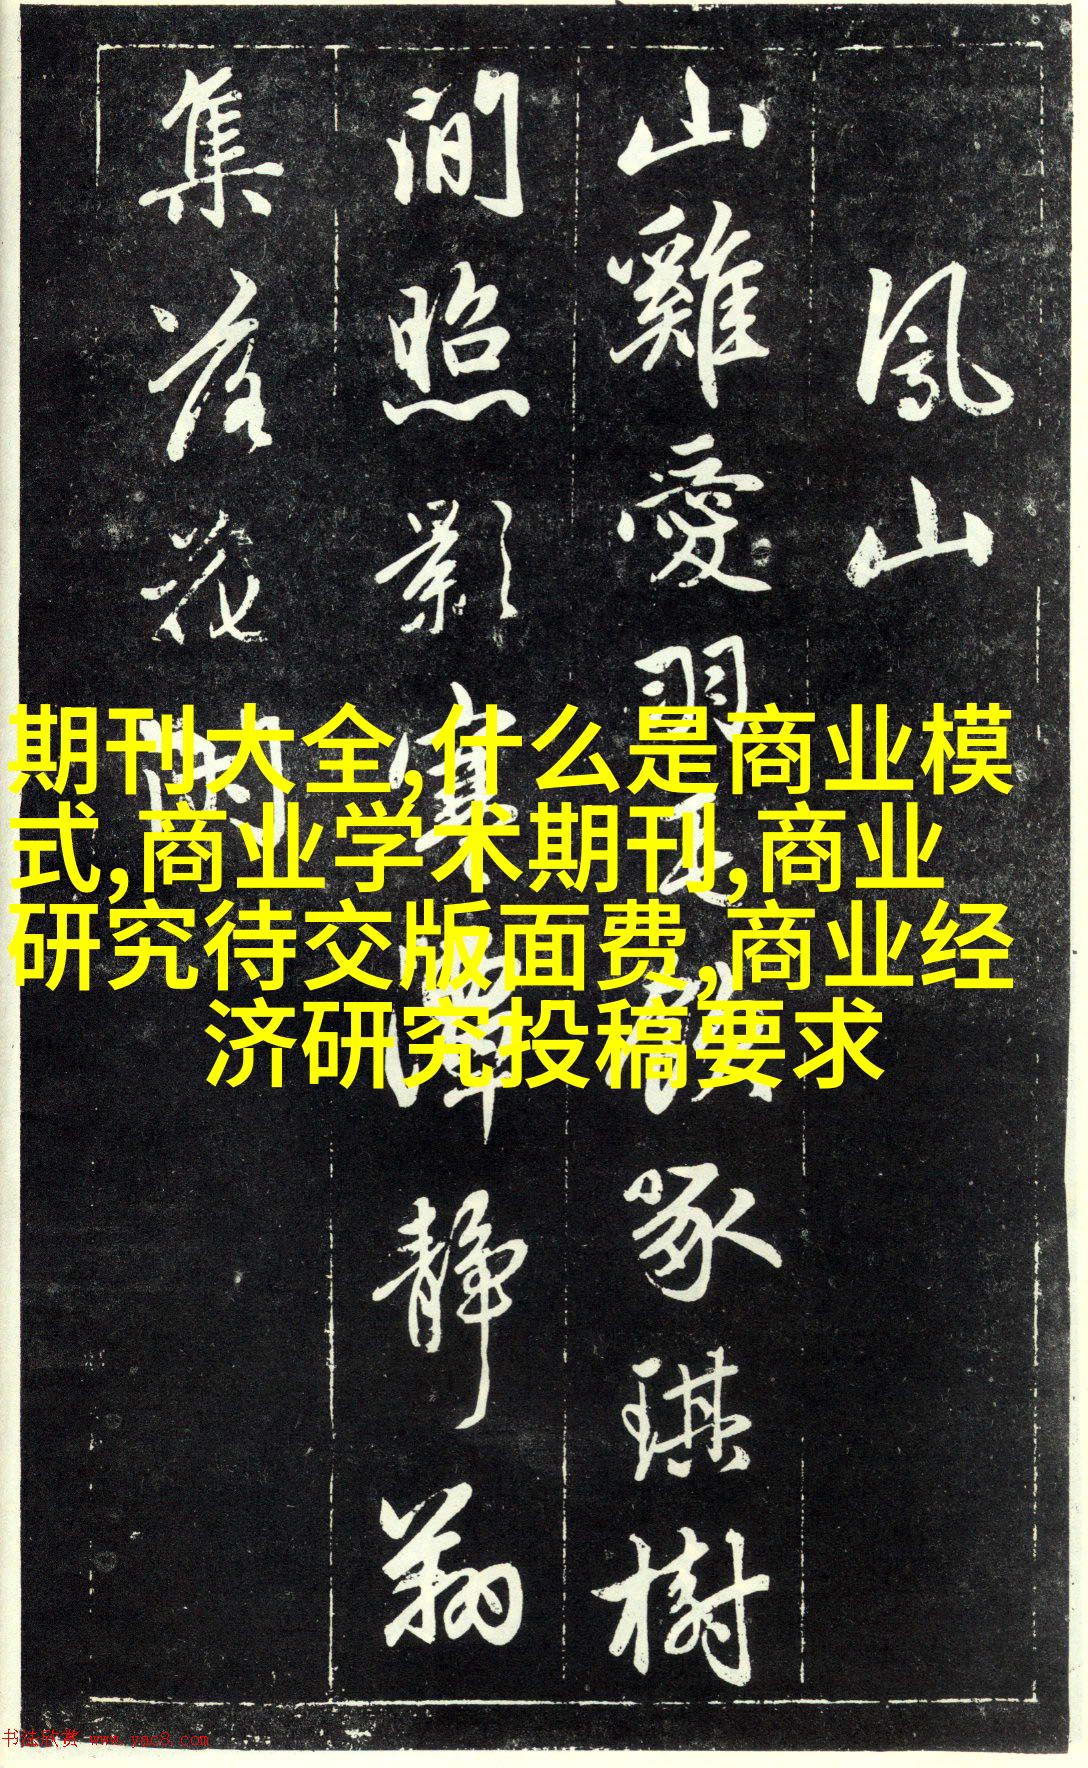 鳳山
山雞愛羽毛
啄琪樹
間照影寒潭靜
集落花開
期刊大全,什么是商业模
式,商业学术期刊,商业
研究待交版面费,商业经
济研究投稿要求
书法欣赏 www.yac8.com